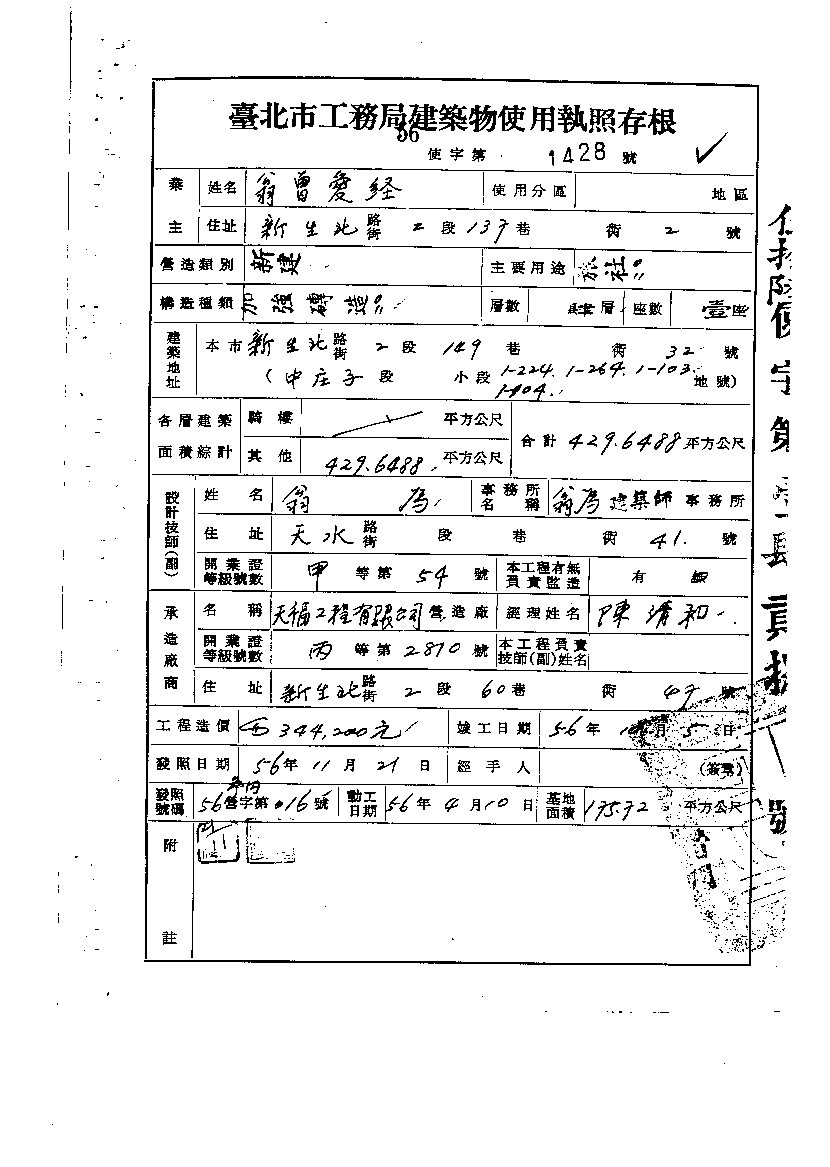 臺北市工務局建築物使用執照存根
56
使字第 1428 號
業主 姓名 翁曾愛経 使用分區 地區
住址 新生北路街 2 段 137 巷 街 2 號
營造類別 新建 主要用途 旅社
構造種類 加強磚造 層數 肆層 座數 壹座
建築地址 本市 新生北路街 2 段 149 巷 街 32 號
(中庄子段 小段 1-224. 1-264. 1-103. 地號)
1-104.
各層建築面積綜計 騎樓 平方公尺 合計 429.6488 平方公尺
其他 429.6488 平方公尺
設計技師(副) 姓名 翁為 事務所名稱 翁為建築師事務所
住址 天水路街 段 巷 街 41 號
開業證等級號數 甲等第 54 號 本工程有無負責監造 有 無
承造廠商 名稱 天福工程有限公司營造廠 經理姓名 陳清和
開業證等級號數 丙等第 2810 號 本工程負責技師(副)姓名
住址 新生北路街 2 段 60 巷 街 號
工程造價 344,200元 竣工日期 56年 月 5 日
發照日期 56年 11月 21日 經手人 (簽章)
發照號碼 56營字第 016 號 動工日期 56年 4月 10日 基地面積 175.72 平方公尺
附註